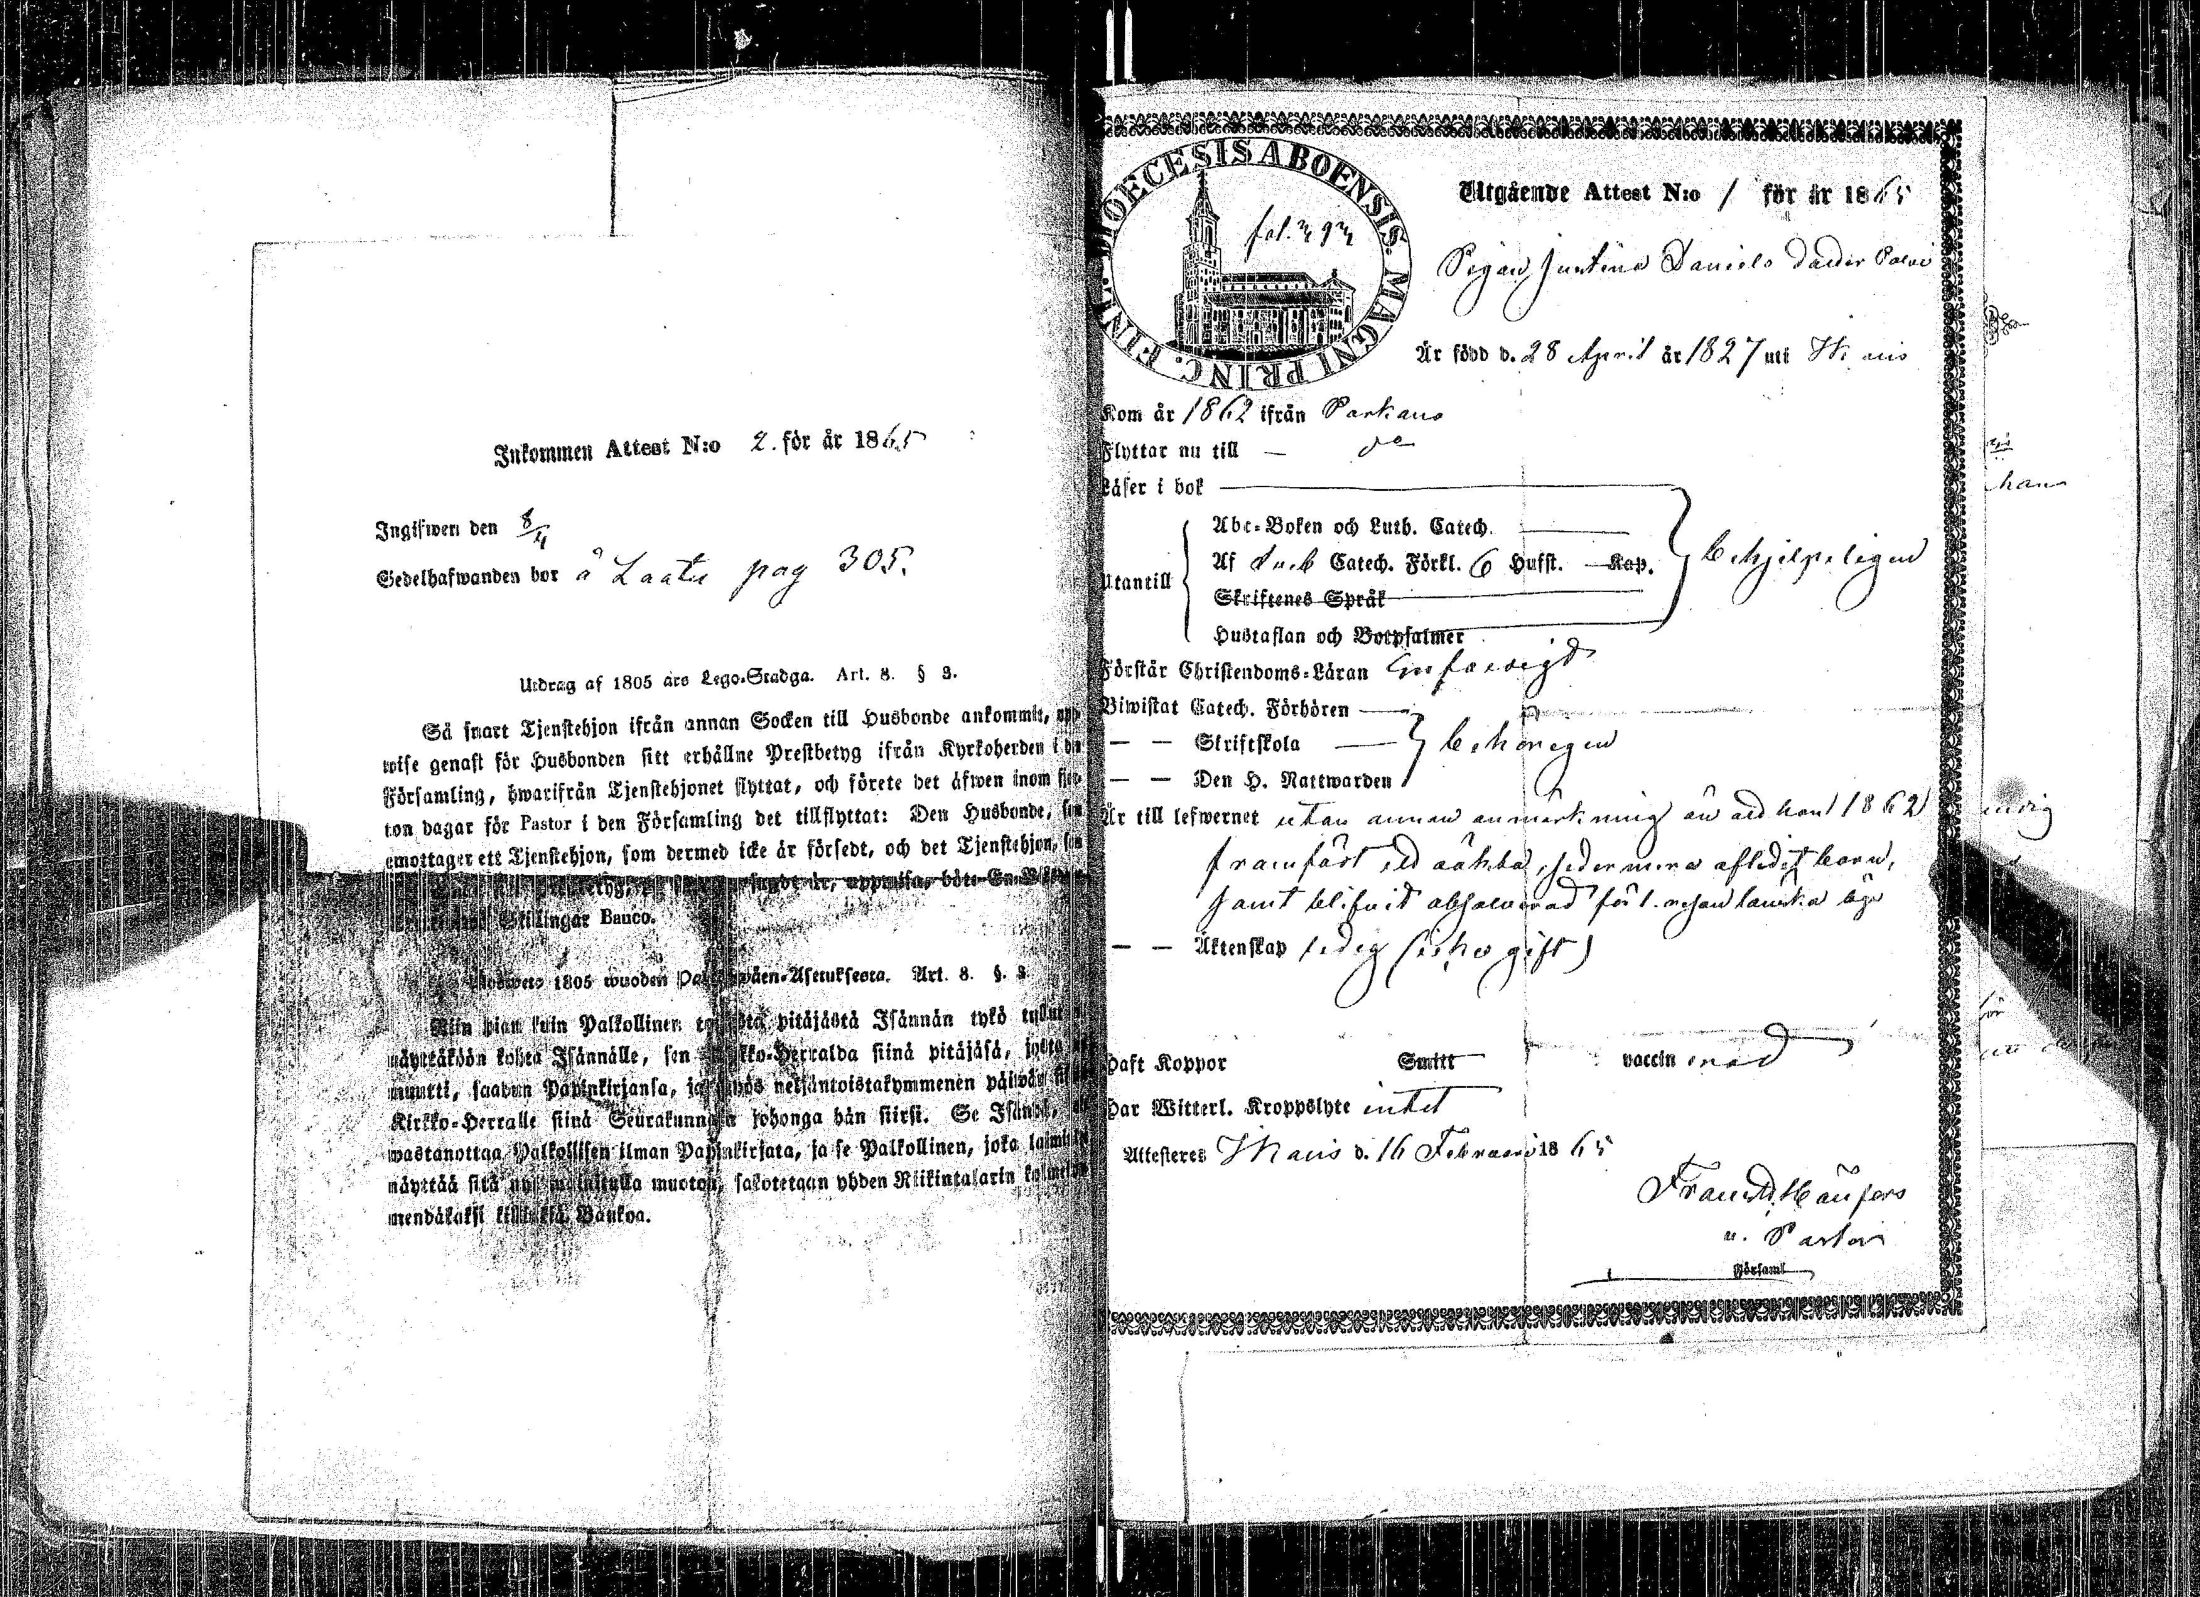 Inkommen Attest N:o 2. för år 1865
Ingifwen den 8/4
Sedelhafwanden bor å Laatu pag 305.
Utdrag af 1805 års Lego-Stadga. Art. 8. § 3.
Så snart Tjenstehjon ifrån annan Socken till Husbonde ankommit,
wise genast för Husbonden sitt erhållne Prestbetyg ifrån Kyrkoherden i den
Församling, hwarifrån Tjenstehjonet flyttat, och förete det äfwen inom fjor-
ton dagar för Pastor i den Församling det tillflyttat: Den Husbonde, som
emottager ett Tjenstehjon, som dermed icke är försedt, och det Tjenstehjon, som
Skillingar Banco.
1805 wuoden Art. 8. §. 3
Niin pian kuin Palkollinen pitäjästä Isännän tykö tullut
näyttäköön kohta Isännälle, sen Kirkko-Herralda siinä pitäjäsä, josta
muutti, saadun Papinkirjansa, ja neljäntoistakymmenen päiwän
Kirkko-Herralle siinä Seurakunnasa johonga hän siirsi. Se Isändä,
wastanottaa Palkollisen ilman Papinkirjata, ja se Palkollinen, joka
näyttää sitä nyt muoton, sakotetaan yhden Riikintalarin kolmen
mendäkaksi killinkiä Bankoa.
DIOECESIS ABOENSIS. MAGNI PRINC. FINL.
fol.
Utgående Attest N:o 1 för år 1865
Pigan Justina Daniels dotter
Är född d. 28 April år 1827 uti Ikalis
Kom år 1862 ifrån Parkano
Flyttar nu till — do
Läser i bok
Abc-Boken och Luth. Catech.
Utantill Af Catech. Förkl. 6 Hufst. Kap. behjelpeligen
Skriftenes Språk
Hustaflan och Botpsalmer
Förstår Christendoms-Läran enfaldigt
Biwistat Catech. Förhören
— — Skriftskola behörigen
— — Den H. Nattwarden
Är till lefwernet utan annan anmärkning än att hon 1862
framfödt ett oäkta, sedermera afledet barn,
samt blifvit absolverad för 1. resan
— — Äktenskap ledig (icke gift)
Haft Koppor Smitt vaccinerad
Har Witterl. Kroppslyte intet
Attesteras Ikalis d. 16 Februari 1865
Pastor
Församl